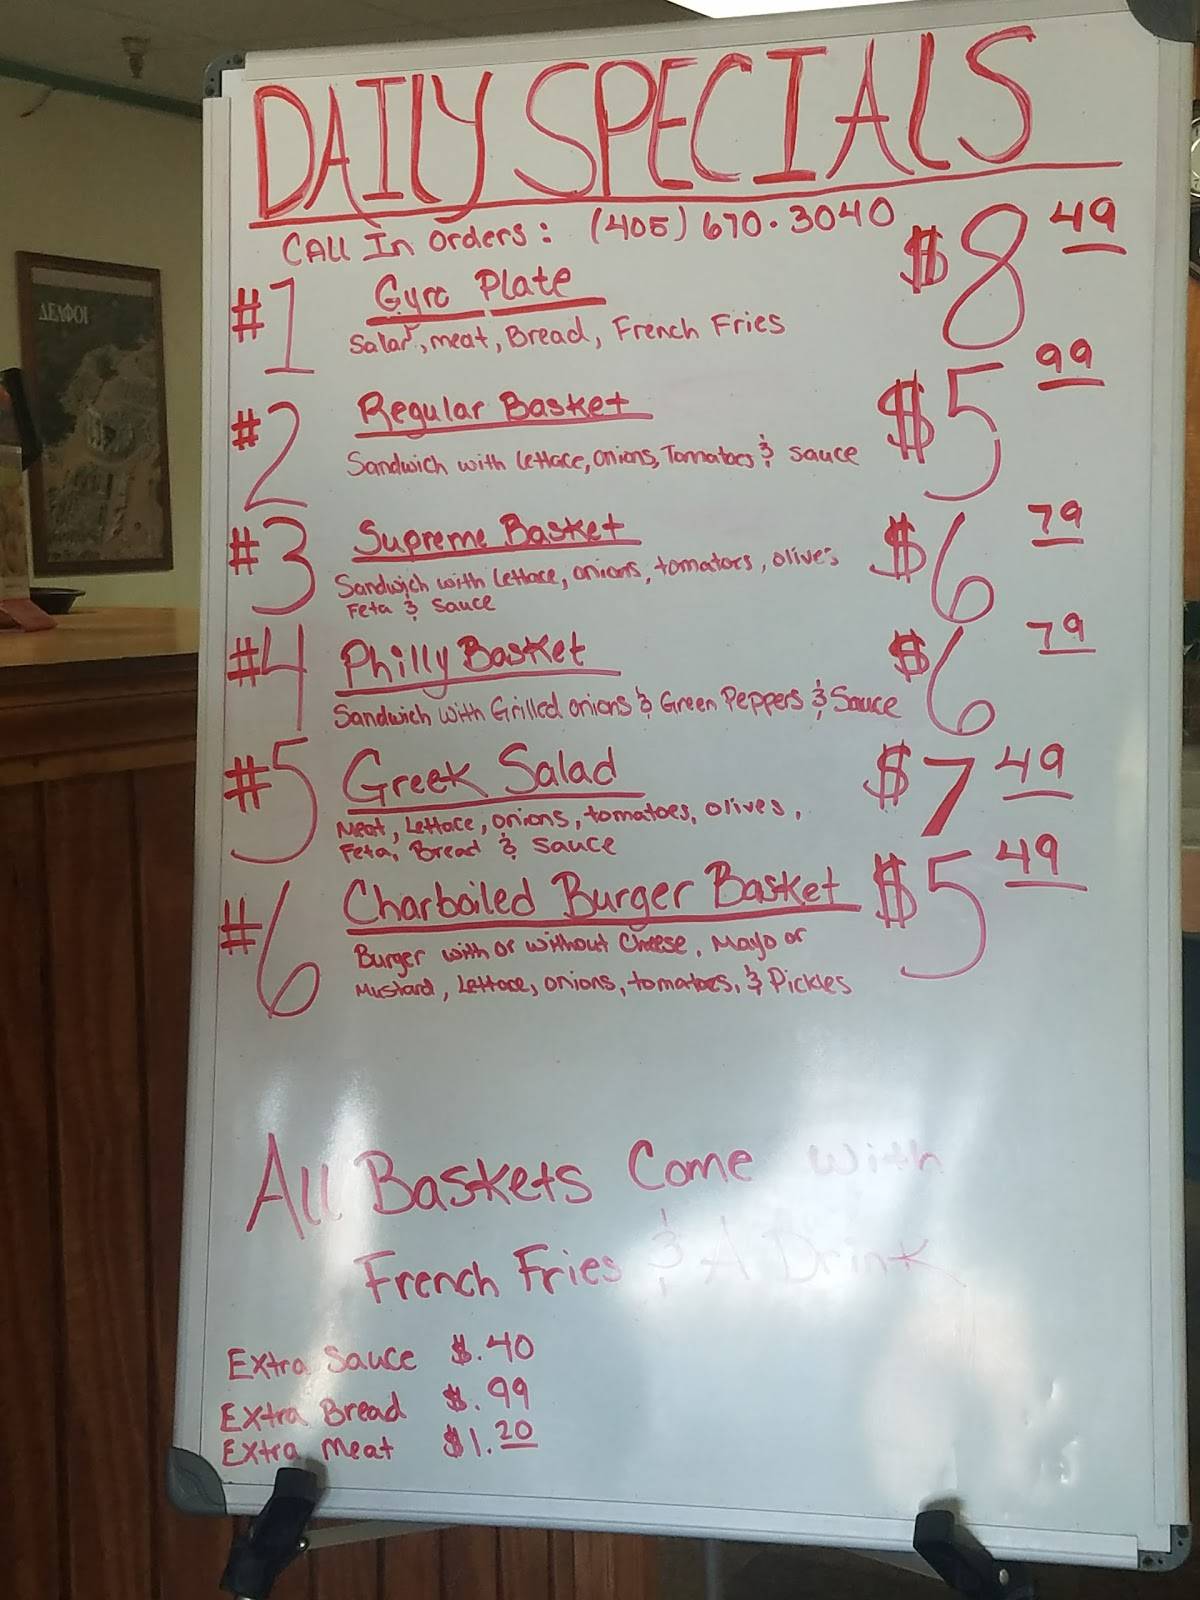 DAILY SPECIALS
CALL In Orders: (405) 670·3040
#1 Gyro Plate $8 49
Salad, meat, Bread, French Fries
#2 Regular Basket $5 99
Sandwich with Lettace, onions, Tomatoes & sauce
#3 Supreme Basket $6 79
Sandwich with Lettace, onions, tomatoes, olive's
Feta & sauce
#4 Philly Basket $6 79
Sandwich with Grilled onions & Green Peppers & Sauce
#5 Greek Salad $7 49
Meat, Lettace, onions, tomatoes, olives,
Feta, Bread & sauce
#6 Charboiled Burger Basket $5 49
Burger with or without Cheese, Mayo or
Mustard, Lettace, onions, tomatoes, & Pickles
All Baskets Come with
French Fries & A Drink
Extra Sauce $.40
Extra Bread $.99
Extra Meat $1.20
ΔΕΛΦΟΙ